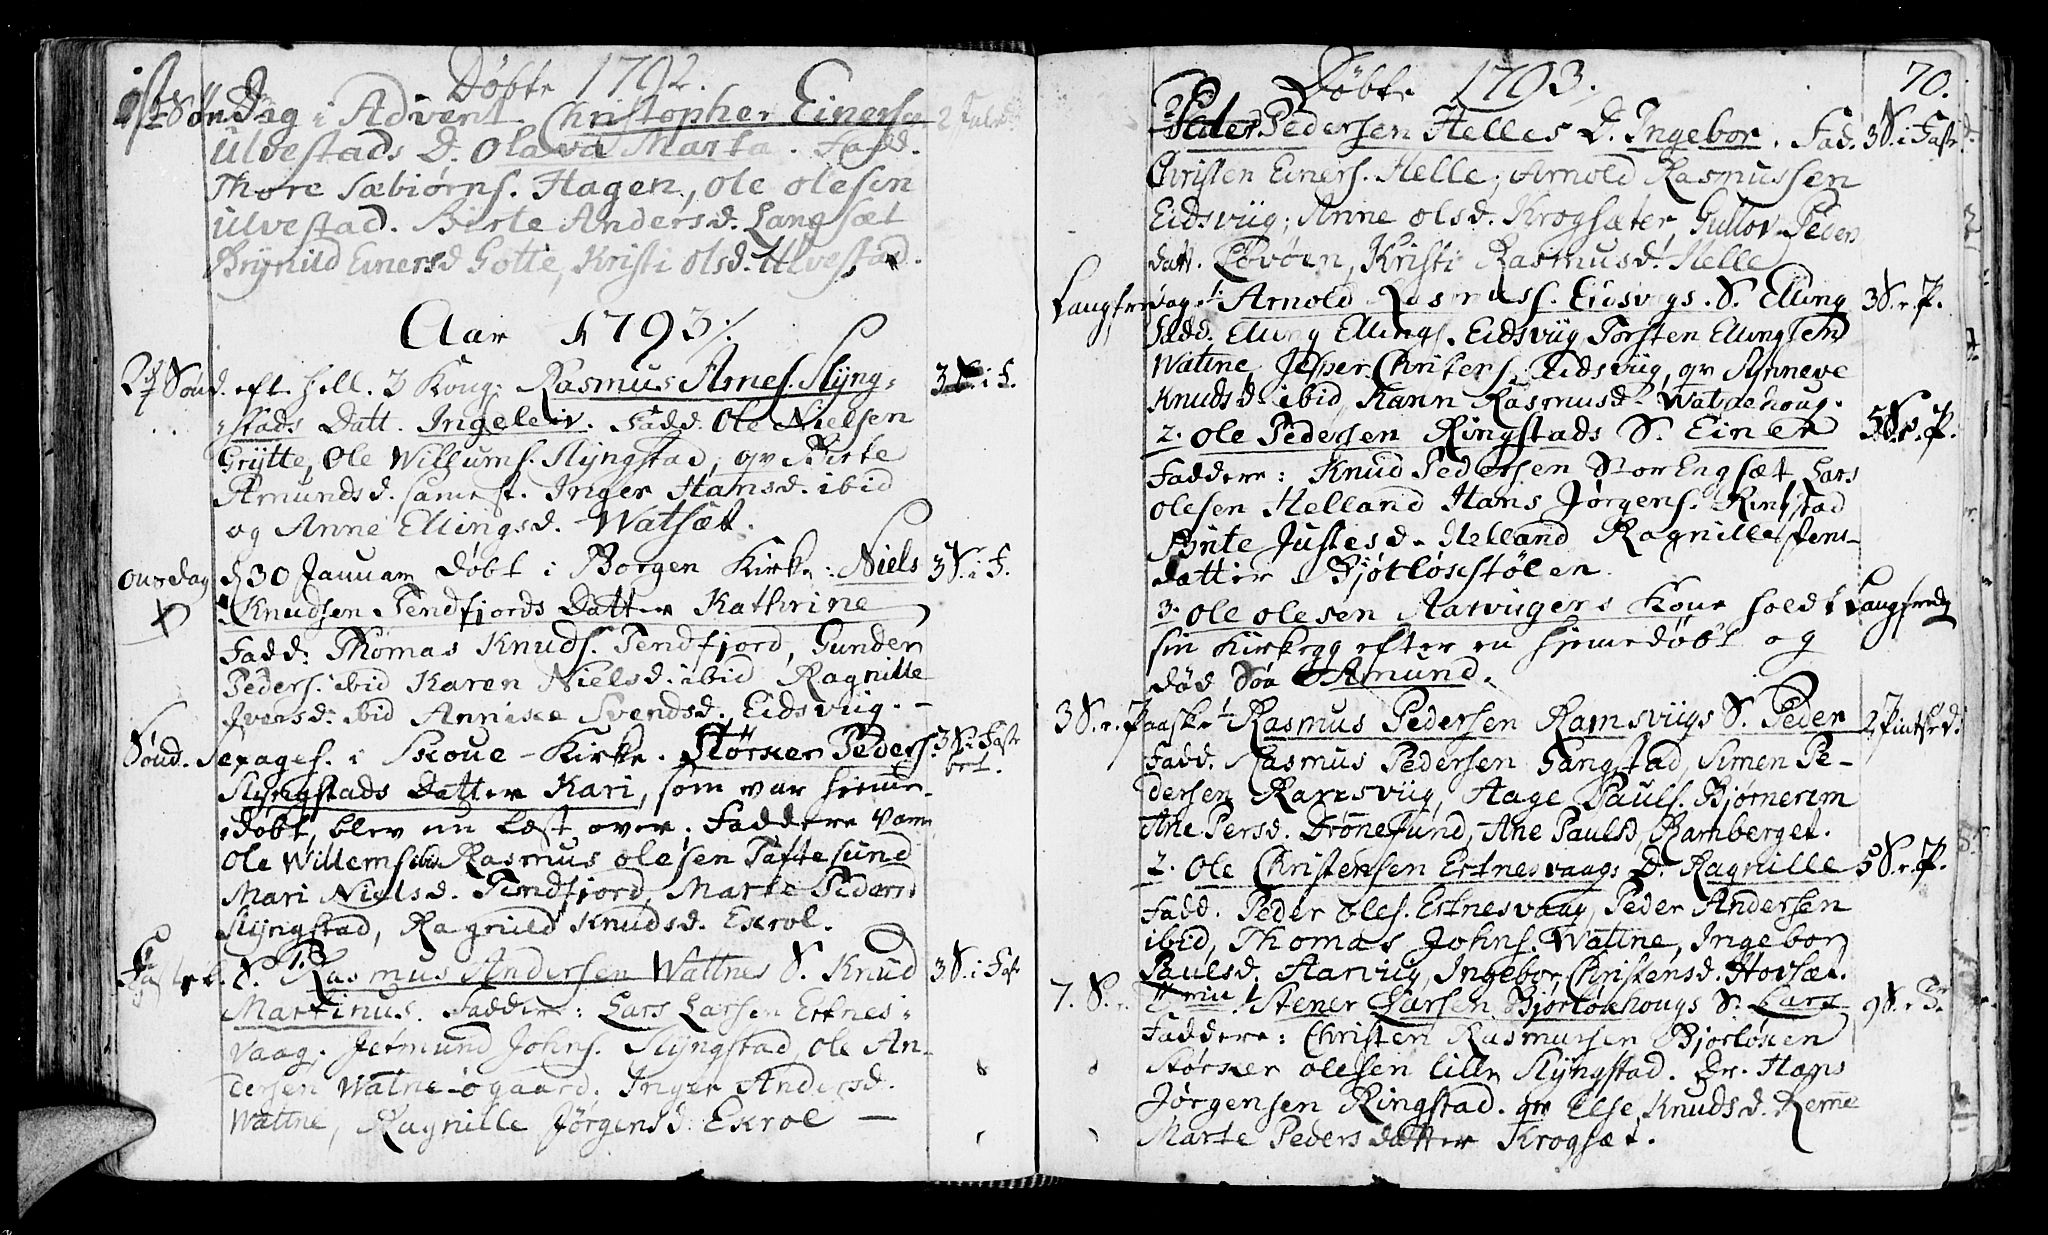 Døbte 1792.
1ste Søndag i Advent Christopher Einersen 2 Juled.
Ulvestads D. Olava Marta. Fadd.
Thore Sæbiørns. Hagen, Ole Olesen
Ulvestad. Birte Andersd. Langsæt
Brynild Einersd Gotte, Kristi Olsd. Ulvestad.
Aar 1793 /:
2d Sønd. eft. Hell. 3 Kong: Rasmus Arnes. Slÿng= 3 S. i F.
=stads Datt. Ingeleiv. Fadd. Ole Nielsen
Grÿtte, Ole Willums. Slÿngstad, qv Birte
Amundsd. samest. Inger Hansd. ibid
og Anne Ellingsd. Watsæt.
Onsdag d 30 Januar døbt i Borgen Kirke: Niels 3 S. i F.
Knudsen Tendfjords Datter Kathrine
Fadd: Thomas Knuds. Tendfjord, Gunder
Peders. ibid Karen Nielsd. ibid Ragnille
Iversd. ibid Annike Svendsd. Eidsviig. -
Sønd. Sexages. i Skoue-Kirke. Størker Peders. 3 S. i Fast
Slÿngstads Datter Kari, som var hieme-
døbt, blev nu læst over; Faddere vare
Ole Willems ibid Rasmus Olesen Taftesund
Mari Nielsd. Tendfjord, Marte Pedersd
Slÿngstad, Ragnild Knudsd. Ekrol.
Fastel. S. 1. Rasmus Andersen Wattnes S. Knud 3 S. i Fast
Martinus. Faddere: Lars Larsen Ertnes=
vaag. Jetmund Johns. Slÿngstad, Ole An-
dersen Watne-øgaard. Inger Andersd.
Wattne, Ragnille Jørgensd. Ekrol —
Døbte 1793. 70.
2. Peder Pedersen Helles D. Ingebor. Fad. 3 S. i Fast
Christen Einers. Helle; Arnold Rasmussen
Eidsviig; Anne Olsd. Krogsæter, Gullov Peders
datt. Løvøen, Kristi Rasmusd. Helle
Langfredag. 1. Arnold Rasmuss. Eidsvigs. S. Elling 3 S. e. P.
Fadd. Elling Ellings. Eidsviig Torsten Ellingsen
Watne, Jesper Christens. Eidsviig, qv Anneve
Knudsd. ibid, Karen Rasmusd. Watnehoug.
2. Ole Pedersen Ringstads S. Einer 5 S. e. P.
Faddere: Knud Pedersen StorEngsæt, Lars
Olesen Helland Hans Jørgens. Ringstad
Brite Justesd. Helland Ragnille Jens-
datter Bjørløkstølen.
3. Ole Olesen Aarviigens Kone holdt Langfredag
sin Kirkegg efter en hiemedøbt og
død Søn Amund.
3 S. e. Paaske 1. Rasmus Pedersen Ramsviigs S. Peder 2 Pintsed.
Fadd. Rasmus Pedersen Gangstad, Simen Pe-
dersen Ramsviig, Aage Pauls. Bjørnerem
Ane Persd. Drønesund, Ane Paulsd. Ramberget.
2. Ole Christensen Ertnesvaags D. Ragnille 5 S. e. P.
Fadd. Peder Oles. Ertnesvaag, Peder Andersen
ibid, Thomas Johns. Wattne, Ingebor
Paulsd. Aarviig, Ingebor Christensd. Hovsæt.
7. S. e. Trin. 1. Stener Larsen Bjørløkhougs S. Lars 9 S. e. Tr.
Faddere: Christen Rasmussen Bjørløken
Størker Olesen lille Slÿngstad. Dr. Hans
Jørgensen Ringstad. qv Else Knudsd. Reme
Marte Pedersdatter Krogsæt.